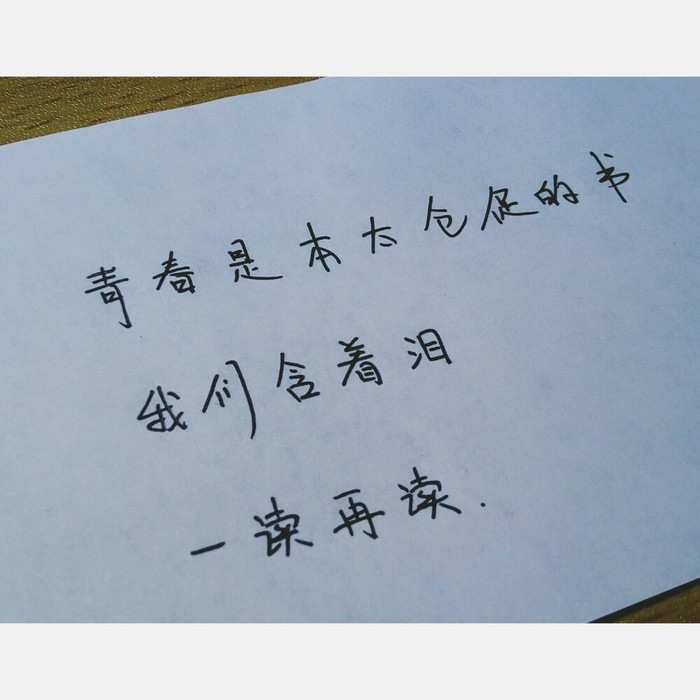 青春是本太仓促的书
我们含着泪
一读再读.